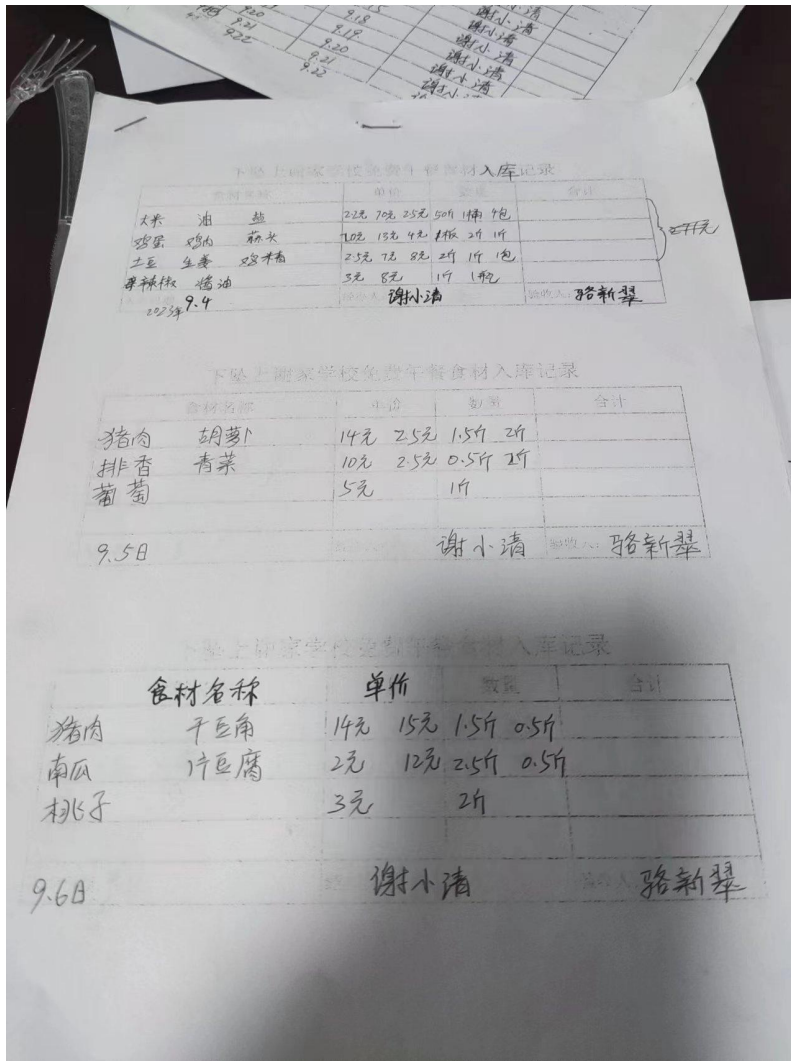 9.20 9.18 谢小清
9.21 9.19 谢小清
9.22 9.20 谢小清
9.21 谢小清
9.22 谢小清
学校免费午餐食材入库记录
食材名称 单价 数量 合计
大米 油 盐 2.2元 70元 2.5元 50斤 1桶 4包
鸡蛋 鸡肉 蒜头 13元 4元 2斤 1斤
土豆 生姜 鸡精 2.5元 7元 8元 2斤 1斤 1包
辣椒 酱油 3元 8元 1斤 1瓶
2023年9.4 谢小清 验收人:骆新翠
学校免费午餐食材入库记录
食材名称 单价 数量 合计
猪肉 胡萝卜 14元 2.5元 1.5斤 2斤
排香 青菜 10元 2.5元 0.5斤 2斤
葡萄 5元 1斤
9.5日 谢小清 验收人:骆新翠
学校免费午餐食材入库记录
食材名称 单价 数量 合计
猪肉 干豆角 14元 15元 1.5斤 0.5斤
南瓜 豆腐 2元 12元 2.5斤 0.5斤
桃子 3元 2斤
9.6日 谢小清 骆新翠